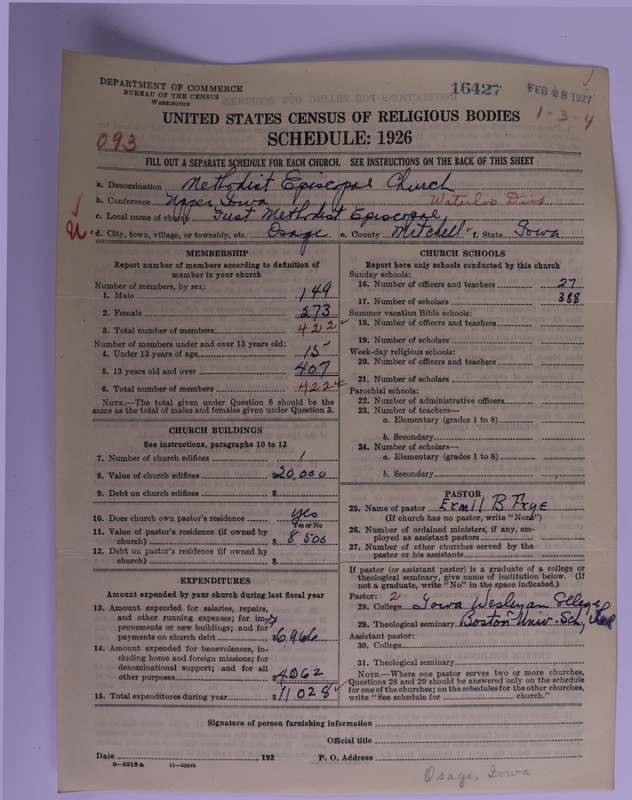 DEPARTMENT OF COMMERCE
BUREAU OF THE CENSUS
WASHINGTON
16427
FEB 28 1927
1-3-4
093
UNITED STATES CENSUS OF RELIGIOUS BODIES
SCHEDULE: 1926
FILL OUT A SEPARATE SCHEDULE FOR EACH CHURCH. SEE INSTRUCTIONS ON THE BACK OF THIS SHEET
a. Denomination Methodist Episcopal Church
b. Conference Upper Iowa Waterloo Dist.
c. Local name of church First Methodist Episcopal
d. City, town, village, or township, etc. Osage e. County Mitchell f. State Iowa
MEMBERSHIP
Report number of members according to definition of
member in your church
Number of members, by sex:
1. Male 149
2. Female 273
3. Total number of members 422
Number of members under and over 13 years old:
4. Under 13 years of age 15
5. 13 years old and over 407
6. Total number of members 422
NOTE.—The total given under Question 6 should be the
same as the total of males and females given under Question 3.
CHURCH BUILDINGS
See instructions, paragraphs 10 to 12
7. Number of church edifices 1
8. Value of church edifices $20,000
9. Debt on church edifices $
10. Does church own pastor's residence yes
Yes or No
11. Value of pastor's residence (if owned by
church) $ 8500
12. Debt on pastor's residence (if owned by
church) $
EXPENDITURES
Amount expended by your church during last fiscal year
13. Amount expended for salaries, repairs,
and other running expenses; for im-
provements or new buildings; and for
payments on church debt $6966
14. Amount expended for benevolences, in-
cluding home and foreign missions; for
denominational support; and for all
other purposes $4062
15. Total expenditures during year $11028
CHURCH SCHOOLS
Report here only schools conducted by this church
Sunday schools:
16. Number of officers and teachers 27
17. Number of scholars 388
Summer vacation Bible schools:
18. Number of officers and teachers
19. Number of scholars
Week-day religious schools:
20. Number of officers and teachers
21. Number of scholars
Parochial schools:
22. Number of administrative officers
23. Number of teachers—
a. Elementary (grades 1 to 8)
b. Secondary
24. Number of scholars—
a. Elementary (grades 1 to 8)
b. Secondary
PASTOR
25. Name of pastor Ermil B Frye
(If church has no pastor, write "None")
26. Number of ordained ministers, if any, em-
ployed as assistant pastors
27. Number of other churches served by the
pastor or his assistants
If pastor (or assistant pastor) is a graduate of a college or
theological seminary, give name of institution below. (If
not a graduate, write "No" in the space indicated.)
Pastor: 2
28. College Iowa Wesleyan College
29. Theological seminary Boston Univ. Sch,
Assistant pastor:
30. College
31. Theological seminary
NOTE.—Where one pastor serves two or more churches,
Questions 28 and 29 should be answered only on the schedule
for one of the churches; on the schedules for the other churches,
write "See schedule for church."
Signature of person furnishing information
Official title
Date , 192 P. O. Address
8—5518a 11—9324b
Osage, Iowa